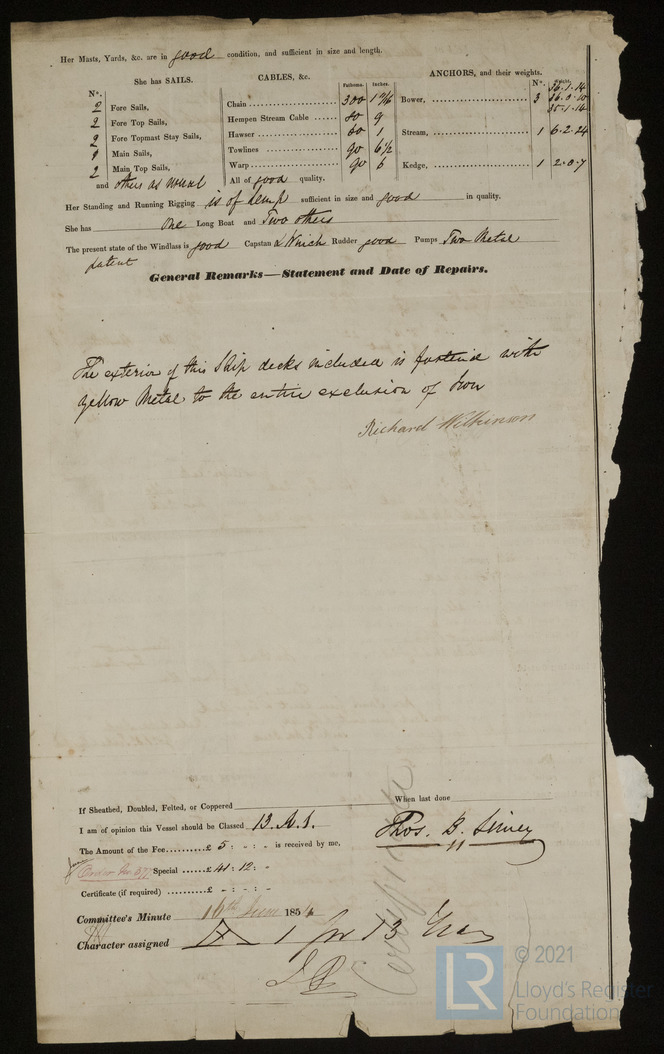 Her Masts, Yards, &c. are in good condition, and sufficient in size and length.
She has SAILS.
CABLES, &c.
ANCHORS, and their weights.
N°.
Fathoms. Inches.
N°. Weight.
2 Fore Sails,
2 Fore Top Sails,
2 Fore Topmast Stay Sails,
Main Sails,
2 Main Top Sails,
and others as usual
Chain 300
Hempen Stream Cable 80 9
Hawser 60 1
Towlines 90 6½
Warp 90 6
All of good quality.
36.1.14
Bower, 3
35.1.14
Stream, 1 6.2.24
Kedge, 1 2.0.7
Her Standing and Running Rigging is of hemp sufficient in size and good in quality.
She has One Long Boat and Two others
The present state of the Windlass is good Capstan & Winch Rudder good Pumps Two Metal
patent
General Remarks—Statement and Date of Repairs.
The exterior of this Ship decks included is fastened with
Yellow Metal to the entire exclusion of Iron
Richard Wilkinson
If Sheathed, Doubled, Felted, or Coppered When last done
I am of opinion this Vessel should be Classed 13. A.1.
Thos. B.
The Amount of the Fee £ 5 : - : - is received by me,
Order No
Special £ 41 : 12 : -
Certificate (if required) £ - : - : -
Committee's Minute 16th June 1854
Character assigned A 1 for 13 Years
Certificate
© 2021
LR
Lloyd's Register
Foundation